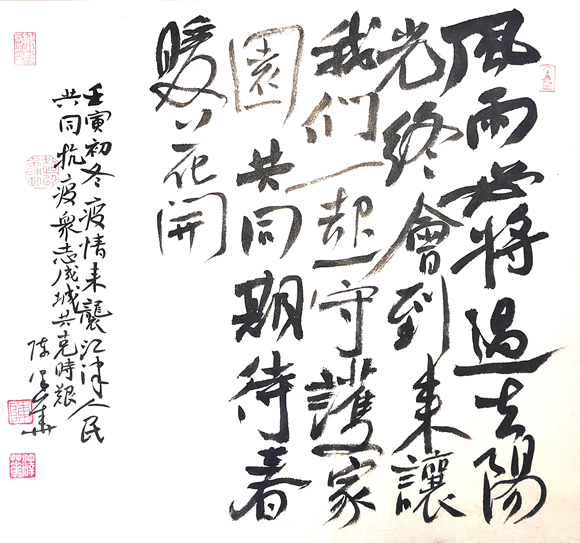 風雨必將過去陽
光終會到来讓
我們一起守護家
園共同期待春
暖花開
壬寅初冬疫情来襲江津人民
共同抗疫衆志成城共克時艱
陈